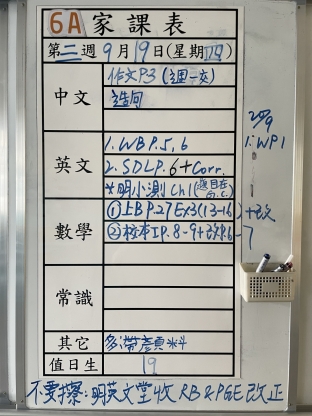 6A 家課表
第二週 9月19日(星期四)
中文
作文P3 (週一交)
造句
英文
1. WB P.5, 6
2. SDLP. 6 + Corr.
* 明小測 Ch1
數學
① 上BP.27 Ex3(13-16) + 改
② 校本工P. 8-9 + 改P.6-7
常識
其它
多帶顏料
值日生
19
1: WP1
不要擦: 明英文堂收 RB & PGE 改正